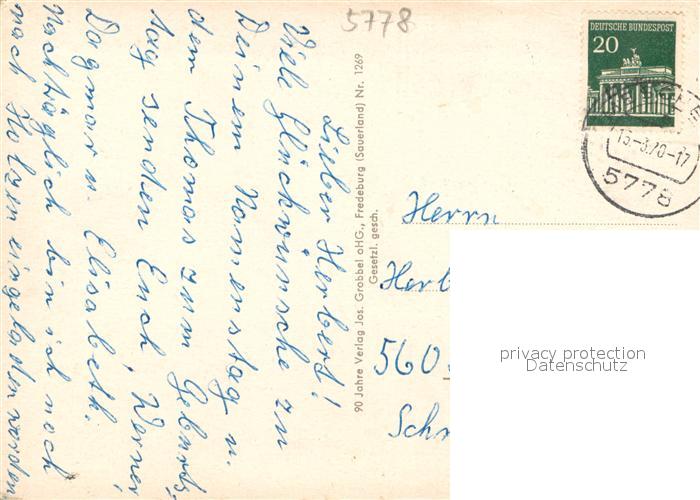 5778
DEUTSCHE BUNDESPOST
20
13-3.70-17
5778
Lieber Herbert!
Viele Glückwünsche zu
Deinem Namenstag u.
dem Thomas zum Geburts,
tag senden Euch, Werner
Dagmar u. Elisabeth.
Nachträglich bin ich noch
nach Holzen eingeladen worden
90 Jahre Verlag Jos. Grobbel oHG., Fredeburg (Sauerland) Nr. 1269
Gesetzl. gesch.
Herrn
Herb
560
Schr
privacy protection
Datenschutz